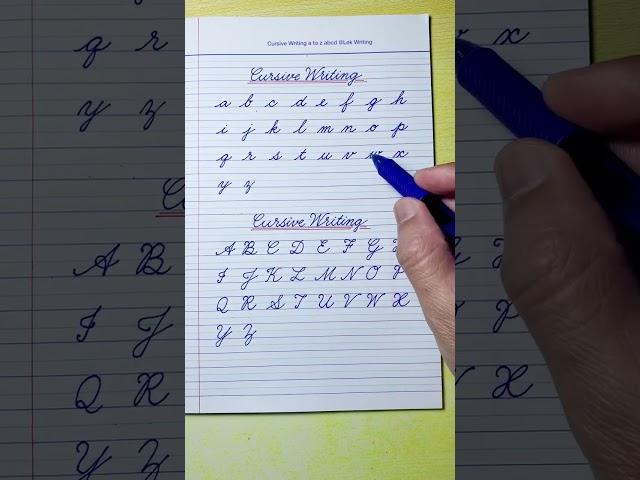 Cursive Writing a to z abcd @Lek Writing
Cursive Writing
a b c d e f g h
i j k l m n o p
q r s t u v w x
y z
Cursive Writing
A B C D E F G
I J K L M N O P
Q R S T U V W X
Y Z